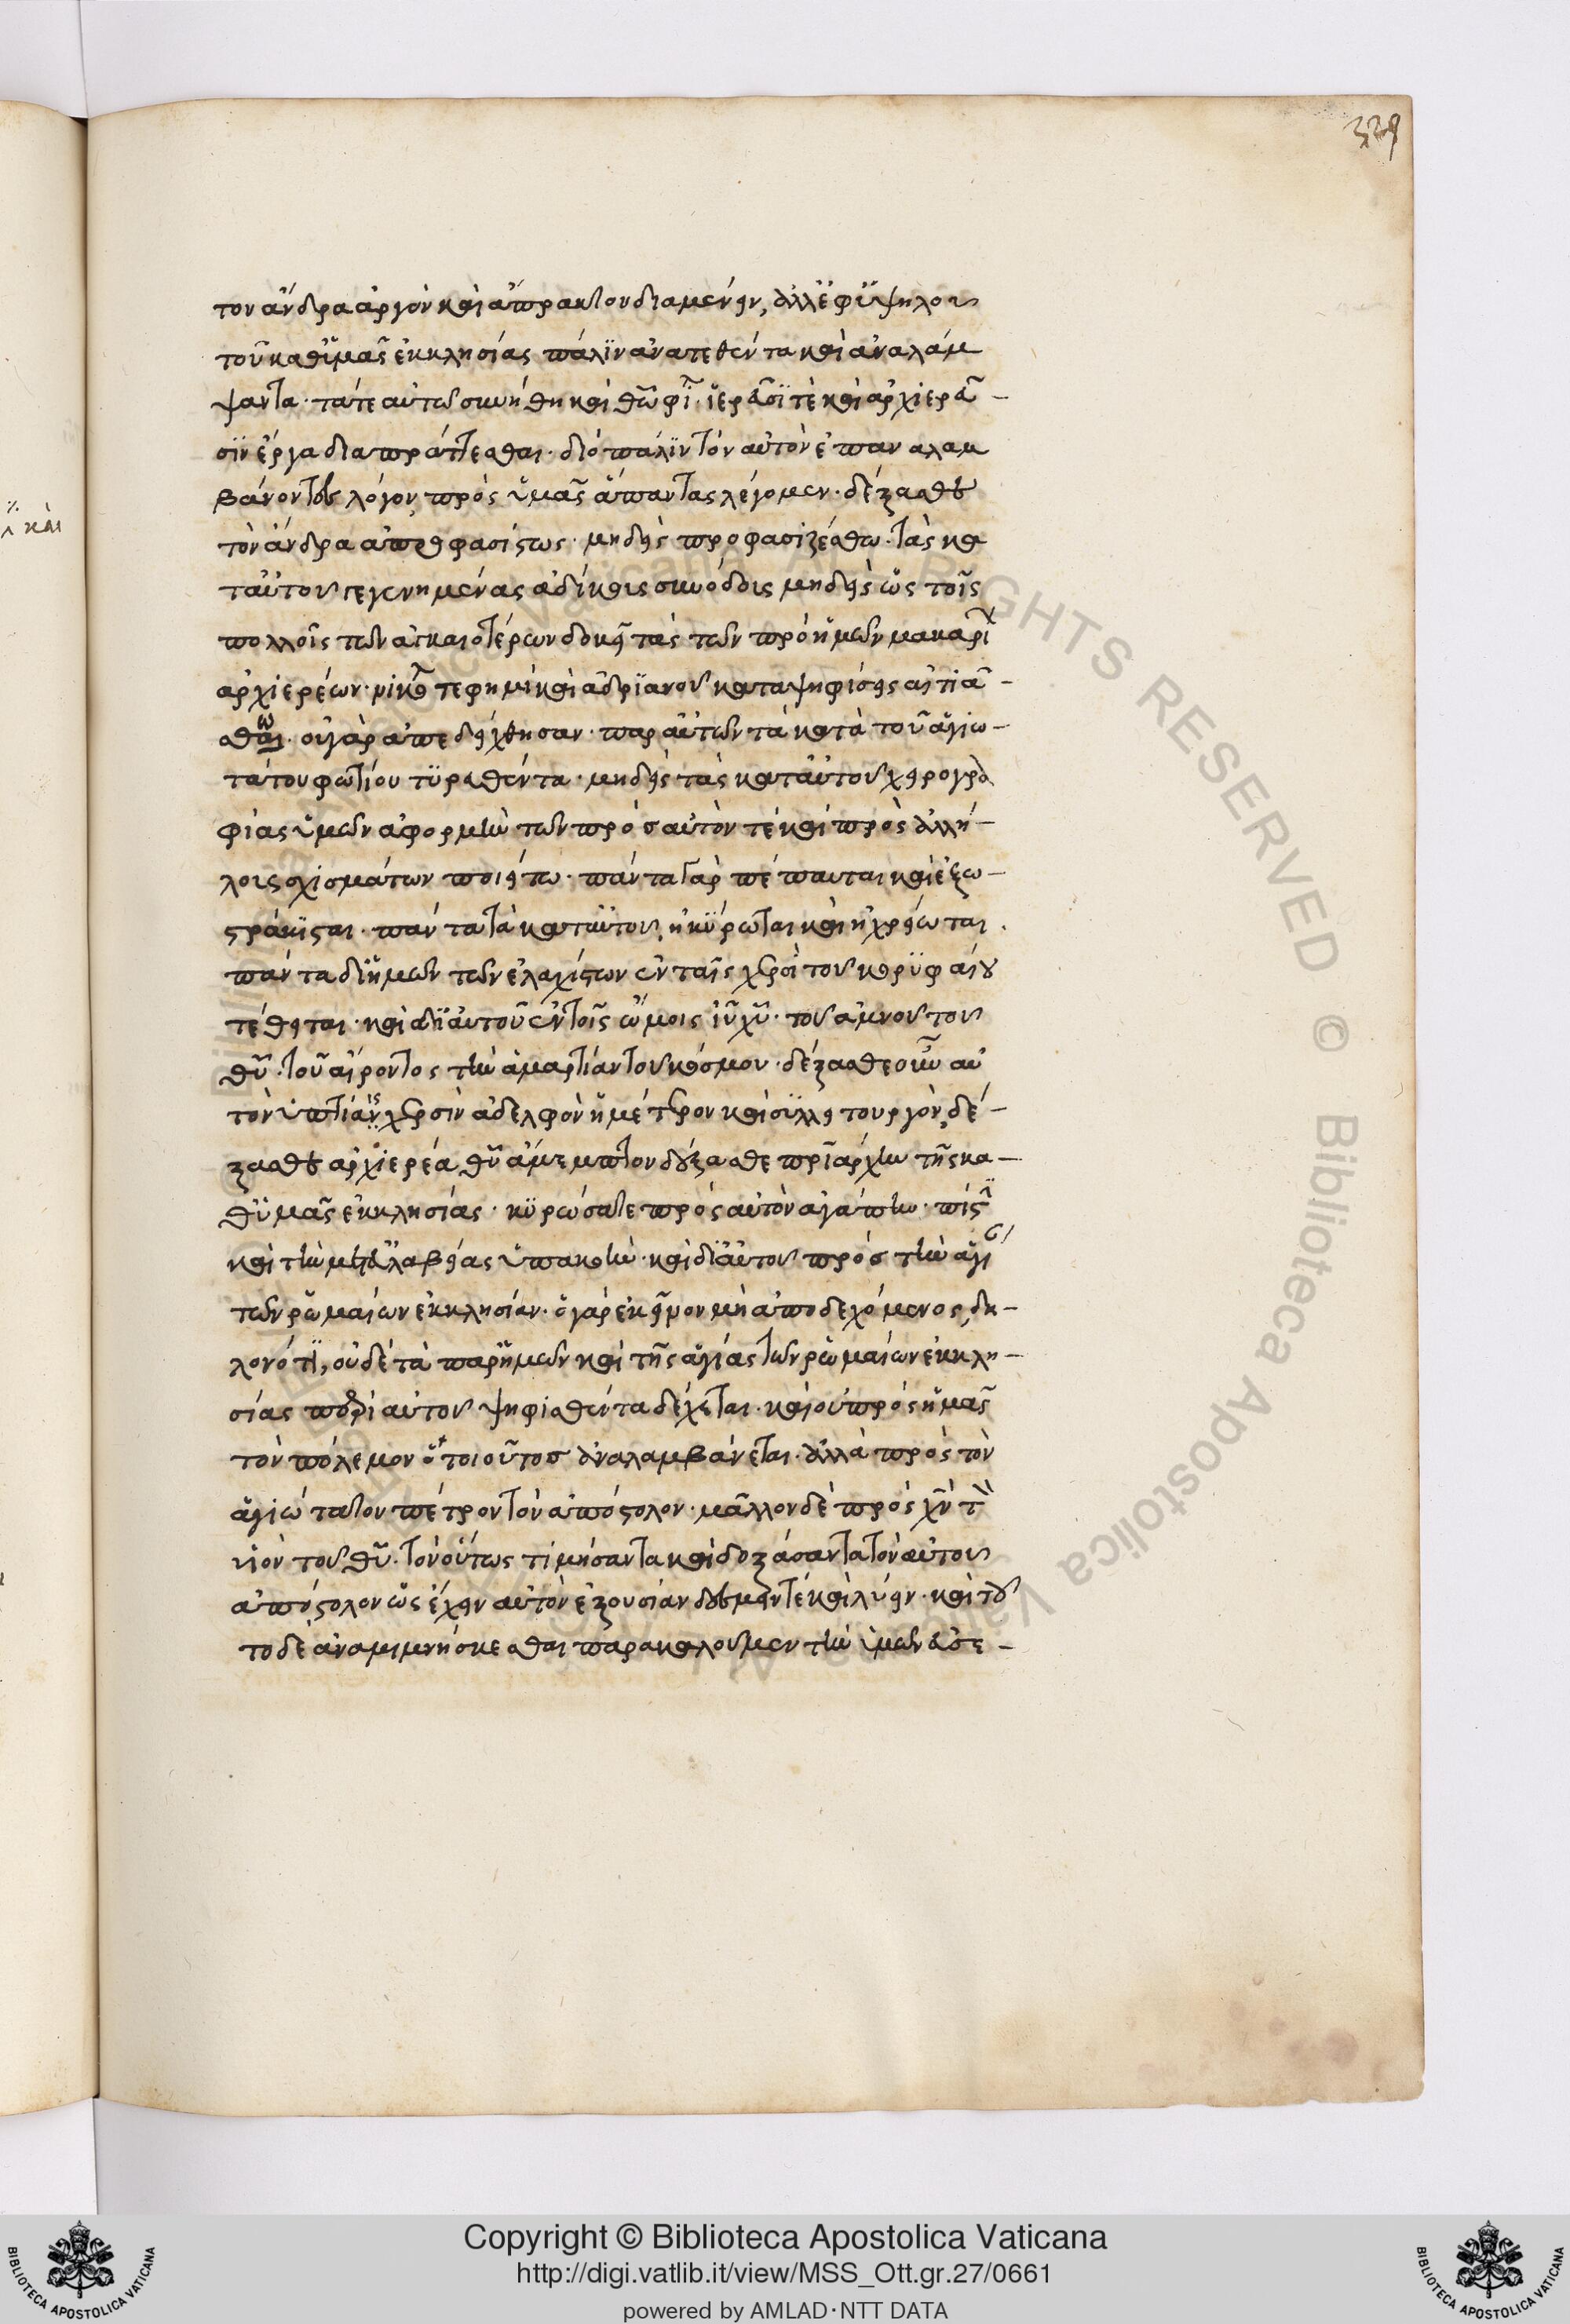 329
τον ἄνδρα ἀργὸν καὶ ἄπρακτον διαμένειν, ἀλλ' ἐφ' ὑψηλου
τοῦ καθ' ὑμᾶς ἐκκλησίας πάλιν ἀνατεθέντα καὶ ἀναλάμ
ψαντα. τά τε αὐτῶ συνήθη καὶ ἱερᾶσί τε καὶ ἀρχιερᾶ-
σιν ἔργα διαπράττεσθαι. διὸ πάλιν τὸν αὐτὸν ἐπαναλαμ
βάνοντες λόγον, πρὸς ὑμᾶς ἅπαντας λέγομεν. δέξασθε
τὸν ἄνδρα ἀπροφασίστως. μηδεὶς προφασιζέσθω. τὰς κα
τ' αὐτοῦ γεγενημένας ἀδίκοις συνόδοις μηδεὶς ὡς τοῖς
πολλοῖς τῶν δοκεῖ τὰς τῶν πρὸ ἡμῶν μακαρί
ἀρχιερέων. νικο τέ φημι καὶ ἀδριανοῦ καταψηφίσεις αἰτιά-
σθω. οὐ γὰρ ἀπεδείχθησαν. παρ' αὐτῶν τὰ κατὰ τοῦ ἁγιω-
τάτου φωτίου τυρευθέντα. μηδεὶς τὰς κατ' αὐτοῦ χειρογρα
φίας ὑμῶν ἀφορμὴν τῶν πρόσ αὐτὸν τὲ καὶ πρὸς ἀλλή-
λους σχισμάτων ποιείτω. πάντα γὰρ πέπαυται καὶ ἐξω-
στράκισται. πάντα τὰ κατ' αὐτοῦ, ἠκύρωται καὶ ἠχρείωται.
πάντα δι' ἡμῶν τῶν ἐλαχίστων ἐν ταῖς χερσὶ τοῦ κορυφαίου
τέθειται. καὶ δι' αὐτοῦ ἐν τοῖς ὤμοις ἰῦ χῦ. τοῦ ἀμνοῦ τοῦ
θῦ. τοῦ αἴροντος τὴν ἁμαρτίαν τοῦ κόσμου. δέξασθε οὖν αὐ
τὸν ὑπτίαις χερσὶν ἀδελφὸν ἡμέτερον καὶ συλλειτουργὸν, δέ-
ξασθε ἀρχιερέα θῦ ἄμεμπτον δέξασθε πριάρχην τῆς κα-
θ' ὑμᾶς ἐκκλησίας. κυρώσατε πρὸς αὐτὸν ἀγάπην. πίστ
καὶ τὴν μετ' εὐλαβείας ὑπακοὴν. καὶ δι' αὐτοῦ πρόσ τὴν ἁγί
τῶν ῥωμαίων ἐκκλησίαν. ὁ γὰρ ἐκεῖνον μὴ ἀποδεχόμενος, δη-
λονότι, οὐδὲ τὰ παρ' ἡμῶν καὶ τῆς ἁγίας τῶν ῥωμαίων ἐκκλη-
σίας περὶ αὐτοῦ ψηφισθέντα δέχεται. καὶ οὐ πρὸς ἡμᾶς
τὸν πόλεμον ὁ τοιοῦτοσ ἀναλαμβάνεται. ἀλλὰ πρὸς τὸν
ἁγιώτατον πέτρον τὸν ἀπόστολον. μᾶλλον δὲ πρὸς χν τὸν
υἱὸν τοῦ θῦ. τὸν οὕτως τιμήσαντα καὶ δοξάσαντα τὸν αὐτοῦ
ἀπόστολον ὡς ἔχειν αὐτὸν ἐξουσίαν δεσμεῖν τὲ καὶ λύειν. καὶ τοῦ
το δὲ ἀναμιμνήσκεσθαι παρακαλοῦμεν τὴν ὑμῶν εὐσε-
καὶ
Copyright © Biblioteca Apostolica Vaticana
http://digi.vatlib.it/view/MSS_Ott.gr.27/0661
powered by AMLAD·NTT DATA